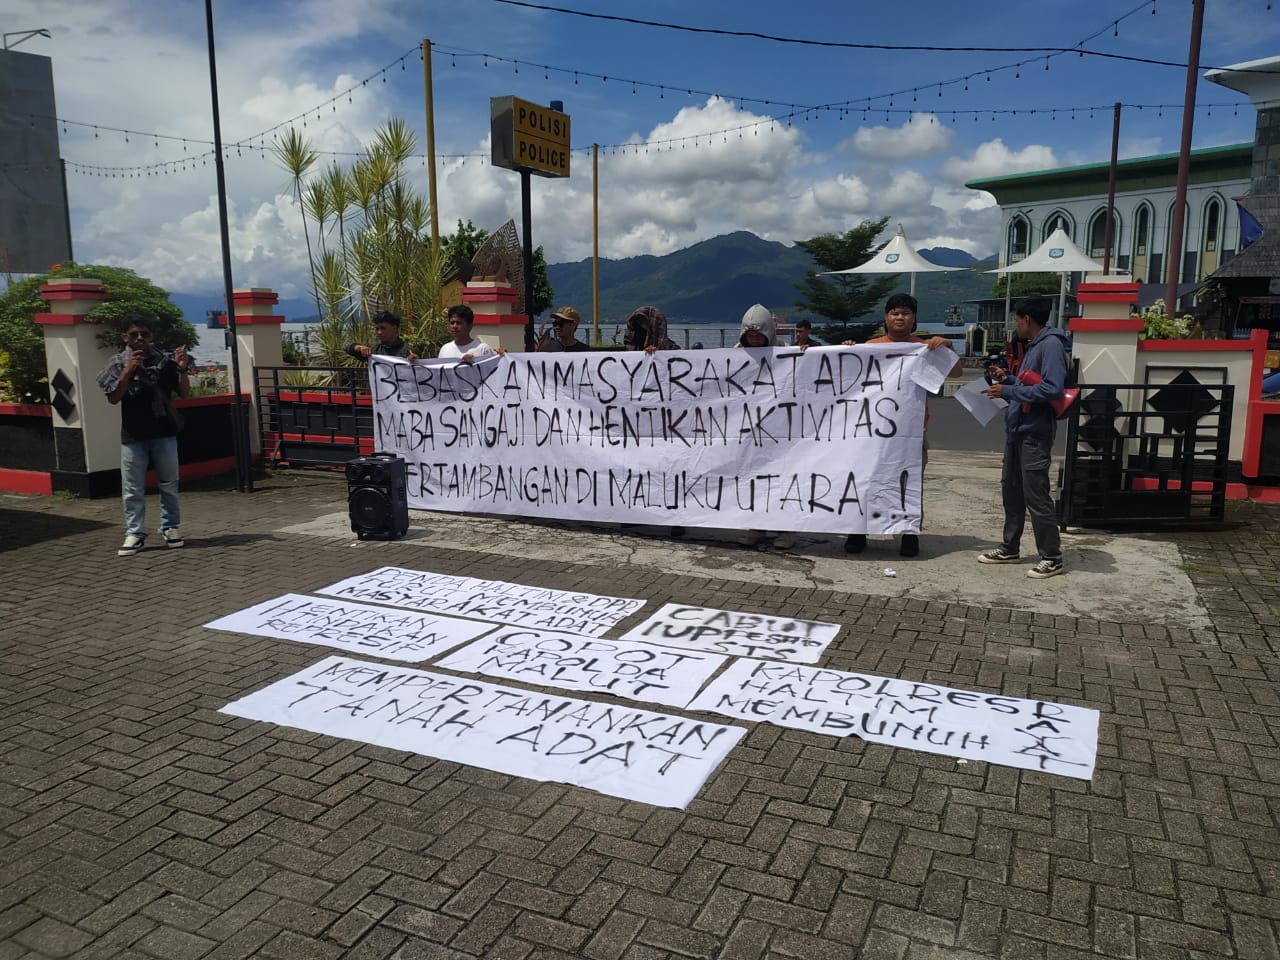 POLISI
POLICE
BEBASKAN MASYARAKAT ADAT
MABA SANGAJI DAN HENTIKAN AKTIVITAS
PERTAMBANGAN DI MALUKU UTARA ..!
PEMDA HALTIM & DPD
TURUT MEMBUNUH
MASYARAKAT ADAT
HENTIKAN
TINDAKAN
REPRESIF
CABUT
IUP
STS
COPOT
KAPOLDA
MALUT
KAPOLRES
HALTIM
MEMBUNUH
RAKYAT
MEMPERTANANKAN
TANAH ADAT